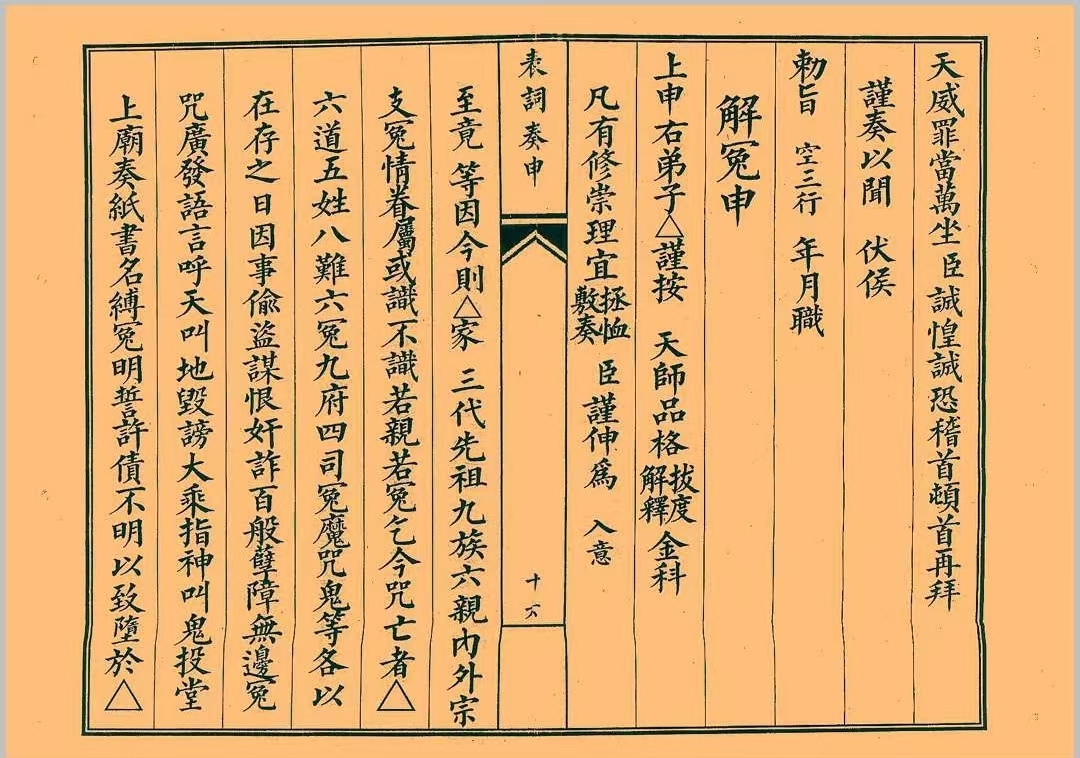 天威罪當萬坐臣誠惶誠恐稽首頓首再拜
謹奏以聞 伏侯
勅旨 空三行 年月職
解冤申
上申右弟子△謹按 天師品格 拔度解釋 金科
凡有修崇理宜 拯恤敷奏 臣謹伸爲 入意
表詞奏申 十六
至竟 等因今則△家 三代先祖九族六親內外宗
支冤情眷屬或識不識若親若冤乞今咒亡者△
六道五姓八難六冤九府四司冤魔咒鬼等各以
在存之日因事偷盜謀恨奸詐百般孽障無邊冤
咒廣發語言呼天叫地毀謗大乘指神叫鬼投堂
上廟奏紙書名縛冤明誓許債不明以致墮於△